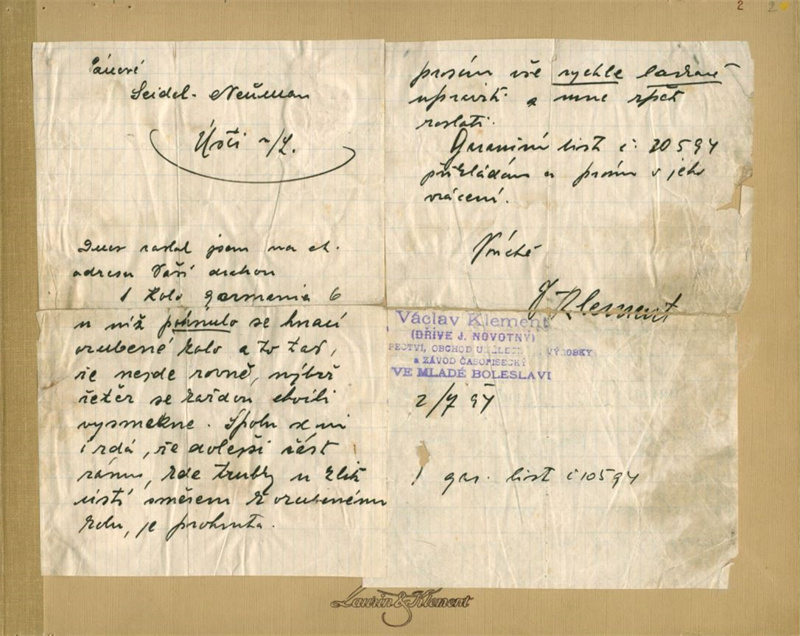 2
2
Pánové
Seidel - Neuman
Ústí n/L.
Dnes zaslal jsem na ct.
adresu Vaší drahou
1 kolo Germania 6
u níž pohnulo se hnací
ozubené kolo a to tak,
že nejde rovně, nýbrž
řetěz se každou chvíli
vysmekne. Spolu se mi
i zdá, že dolejší část
rámu, kde trubky u klik
ústí směrem k ozubenému
kolu, je prohnuta.
prosím vše rychle laskavě
upraviti a mně zpět
zaslati.
Garanční list č. 20594
přikládám a prosím o jeho
vrácení.
V úctě
V Klement
Václav Klement
(DŘÍVE J. NOVOTNÝ)
VÝROBKY
A ZÁVOD ČASOPISECKÝ
VE MLADÉ BOLESLAVI
2/7 94
1 gar. list č 10594
Laurin & Klement